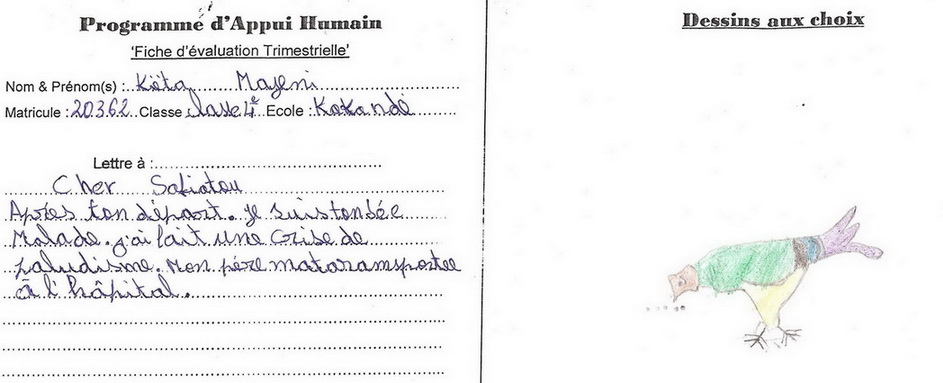 Programme d'Appui Humain
'Fiche d'évaluation Trimestrielle'
Nom & Prénom(s) : Këta Mayeni
Matricule : 20362 Classe classe 4e Ecole : Kokandé
Lettre à :
Cher Safiatou
Après ton départ. je suis tonbée
Malade. j'ai fait une crise de
paludisme. Mon père mataramsportee
à l'hôpital.
Dessins aux choix